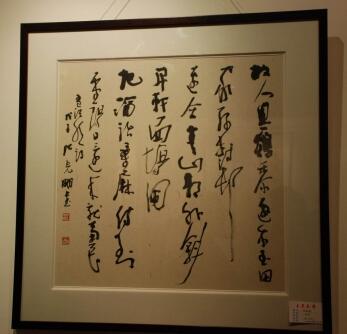 故人具鷄黍邀我至田
家綠樹村
邊合青山郭外斜
開軒面場圃
把酒話桑麻待到
重陽日還來就菊花
孟浩然詩